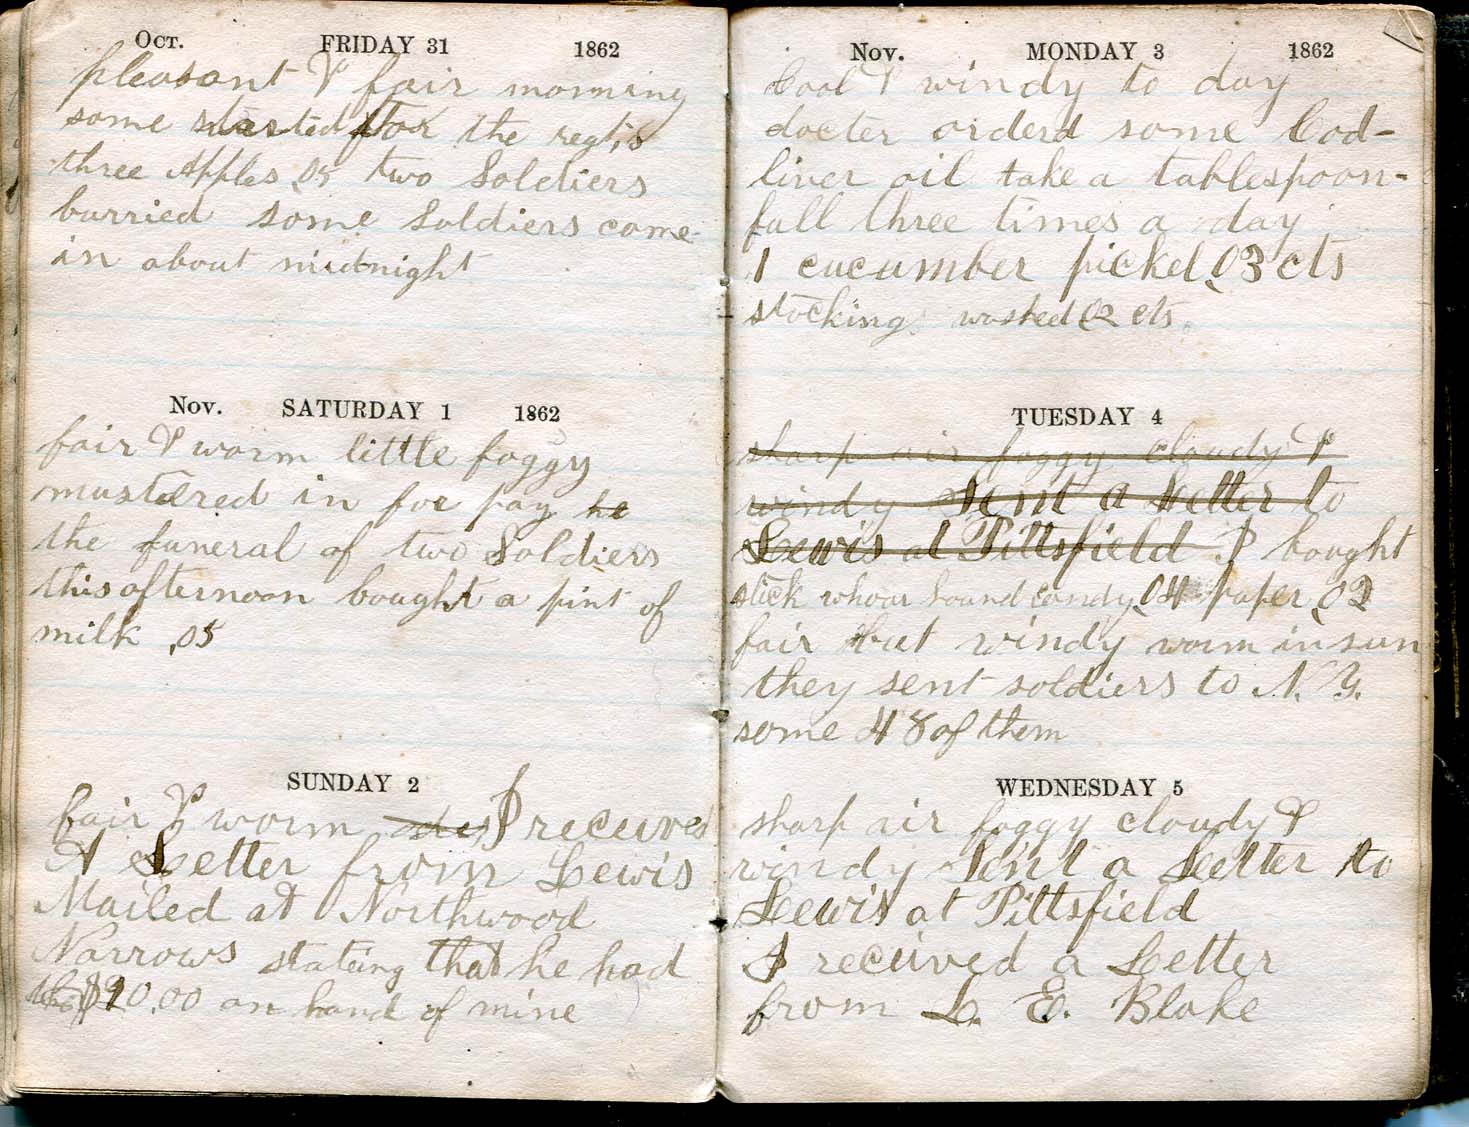 Oct. FRIDAY 31 1862
pleasant & fair morning
some started for the regt's
three Apples .05 two Soldiers
burried some Soldiers come
in about midnight
Nov. SATURDAY 1 1862
fair & warm little foggy
mustered in for pay he
the funeral of two Soldiers
this afternoon bought a pint of
milk .05
SUNDAY 2
fair & warm I received
A Letter from Lewis
Mailed at Northwood
Narrows stateing that he had
0.00 on hand of mine
Nov. MONDAY 3 1862
Cool & windy to day
docter orderd some Cod-
liver oil take a tablespoon-
full three times a day
1 cucumber pickel .03 cts
stocking washed .02 cts.
TUESDAY 4
sharp air foggy cloudy &
windy Sent a Letter to
Lewis at Pittsfield I bought
stick whoar hound candy .04 paper .02
fair but windy warm in sun
they sent soldiers to N. Y.
some 48 of them
WEDNESDAY 5
sharp air foggy cloudy &
windy Sent a Letter to
Lewis at Pittsfield
I received a Letter
from L. E. Blake